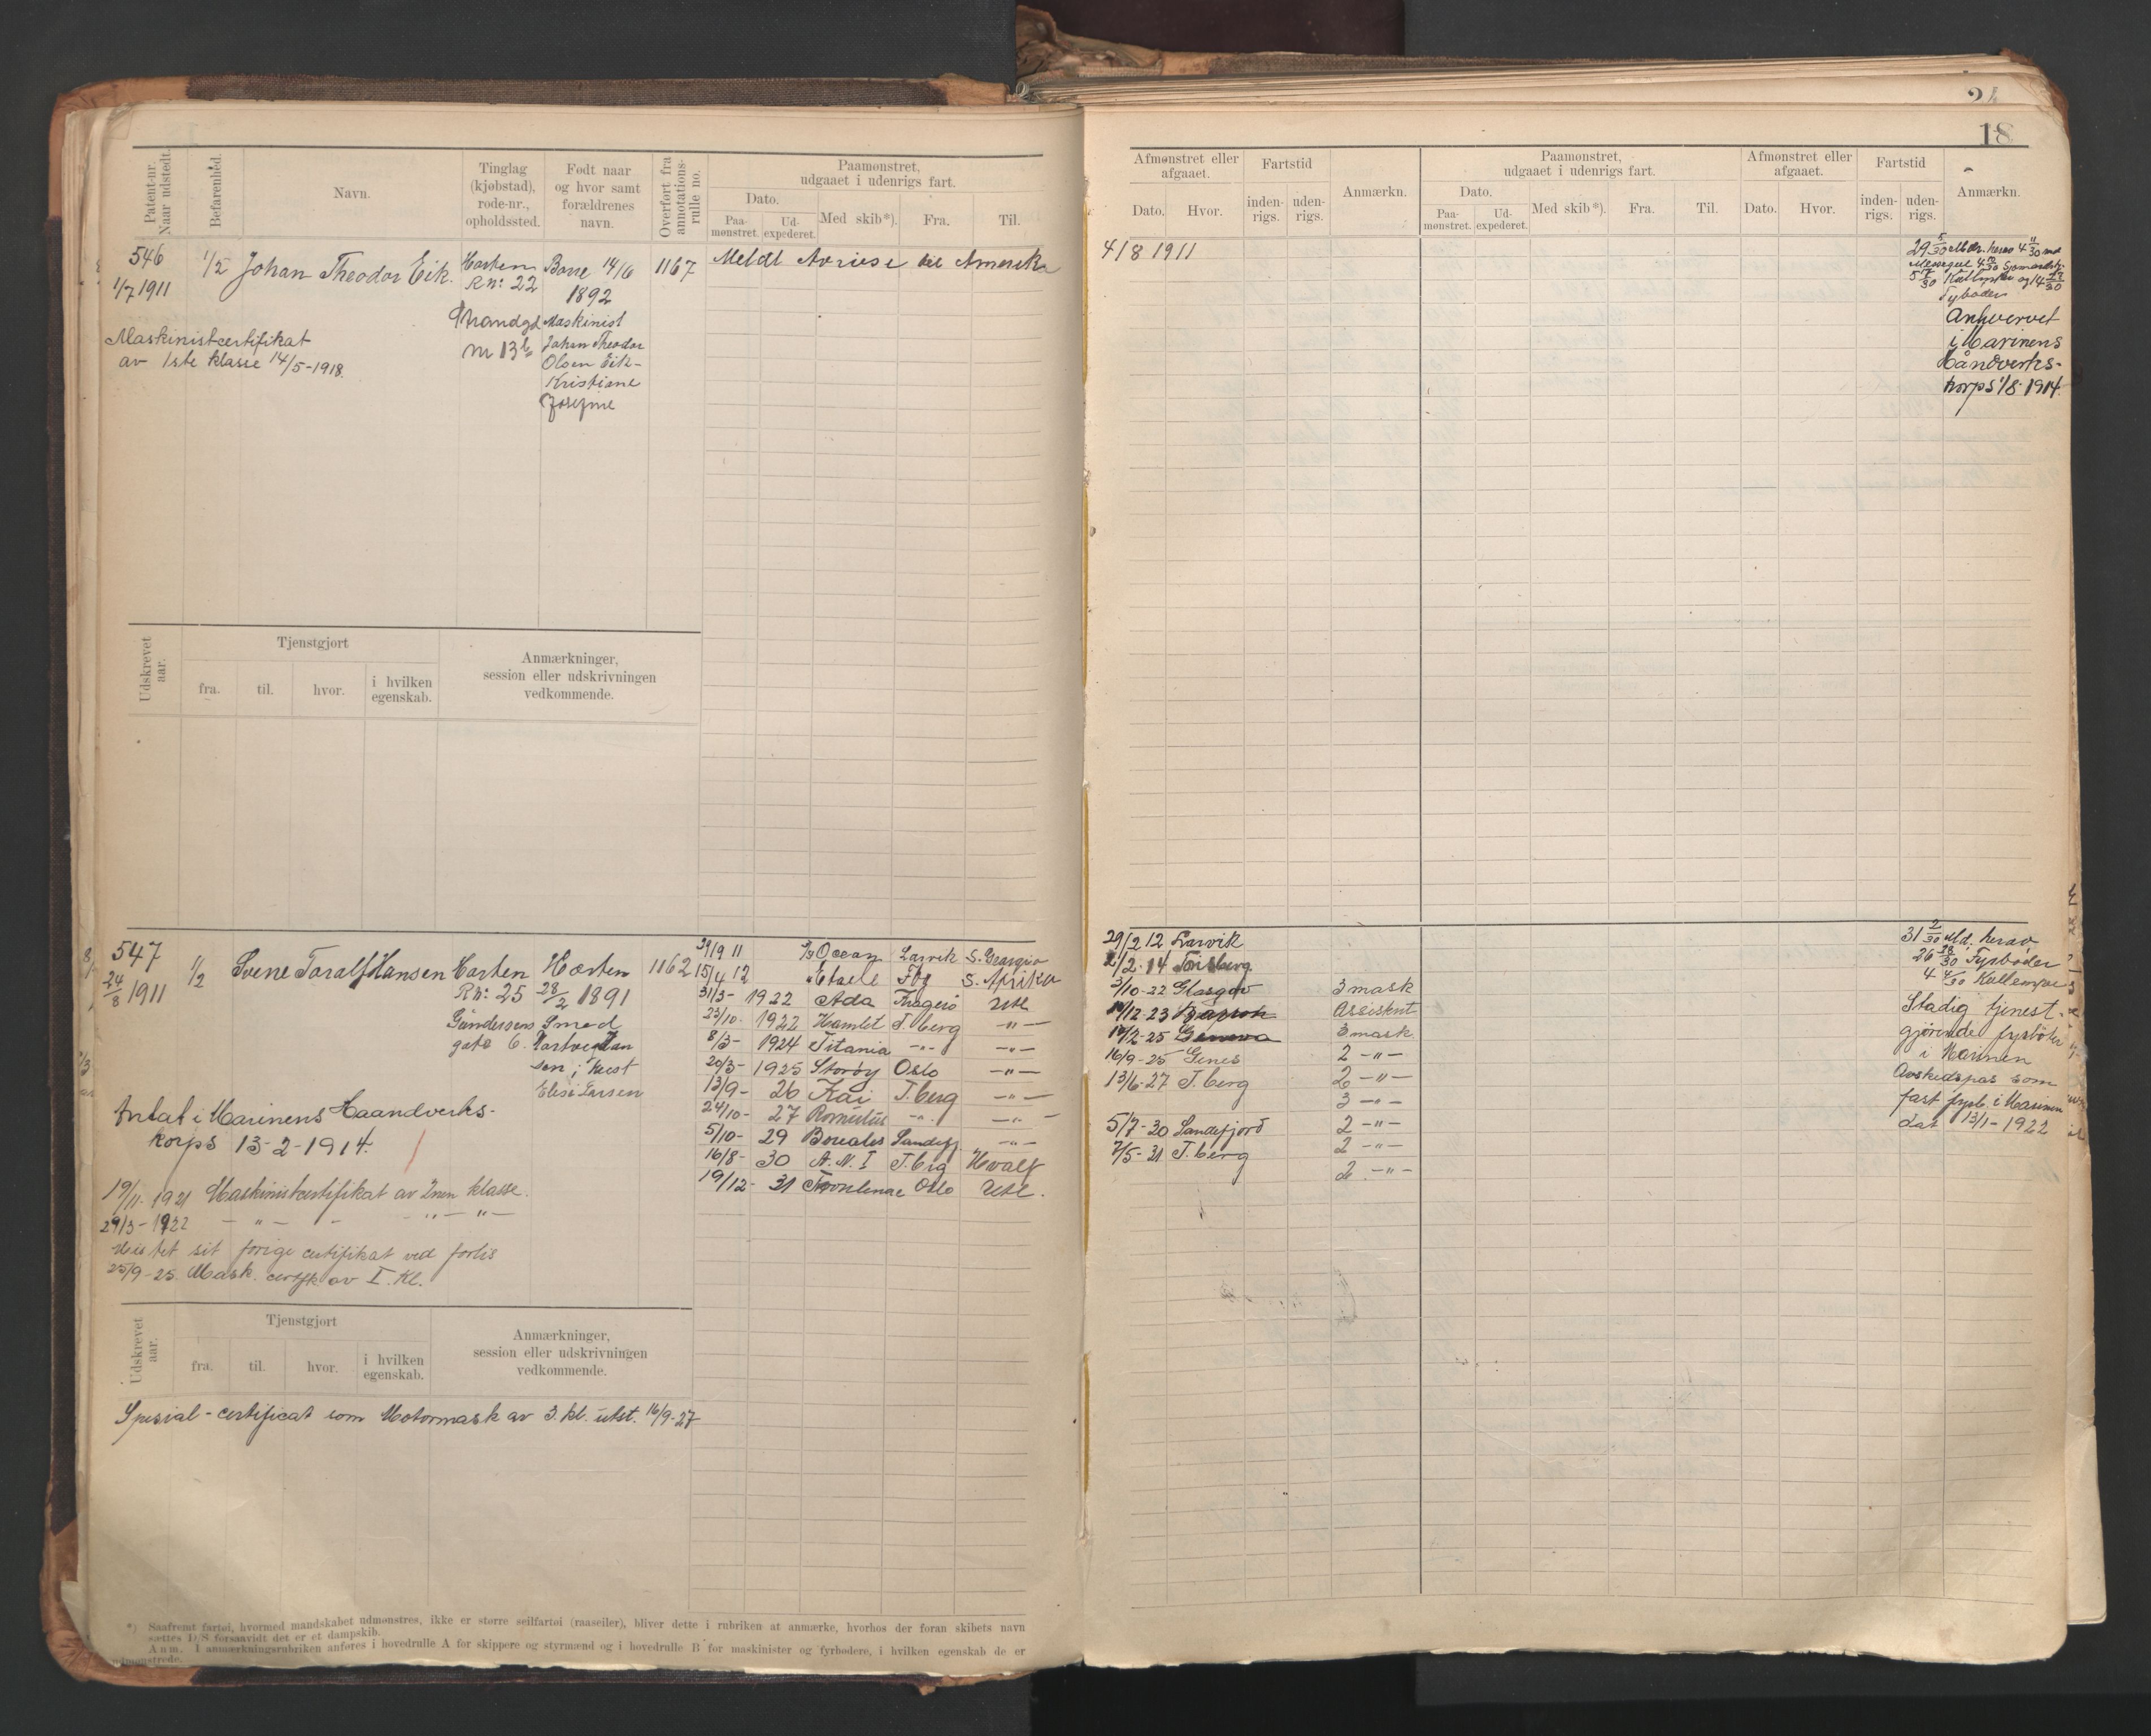 24
18
Patent-nr.
Naar udstedt.
Befarenhed.
Navn.
Tinglag
(kjøbstad),
rode-nr.,
opholdssted.
Født naar
og hvor samt
forældrenes
navn.
Overført fra
annotations-
rulle no.
Paamønstret,
udgaaet i udenrigs fart.
Dato.
Paa-
mønstret.
Ud-
expederet.
Med skib*).
Fra.
Til.
546
1/7 1911
1/2
Johan Theodor Eik.
Horten
R№: 22
Strandgd
nr 13b
Borre 14/6
1892
Maskinist
Johan Theodor
Olsen Eik-
Kristiane
Josefine
1167
Meldt Avreise til Amerika
Maskinistcertifikat
av 1ste klasse 14/5-1918.
Udskrevet
aar.
Tjenstgjort
fra.
til.
hvor.
i hvilken
egenskab.
Anmærkninger,
session eller udskrivningen
vedkommende.
547
24/8 1911
1/2
Svene Toralf Hansen
Horten
R№: 25
Gundersens
gate 6.
Horten
28/2 1891
Smed
Hartvig Han
sen; Hust
Elise Larsen
1162
29/9 11 Ocean Larvik S. Georgia
15/4 12 Etaele Fbg S. Afrika
31/3- 1922 Ada Kragerø Utl
23/10- 1922 Hamlet T. berg -"-
8/3- 1924 Titania -"- -"-
20/3- 1925 Storøy Oslo -"-
13/9- 26 Kai T. berg -"-
24/10- 27 Romulus -"- -"-
5/10- 29 Borealis Sandefj -"-
16/8- 30 A. N. I T. brg Hvalf
19/12- 31 Oslo Utl.
Antat i Marinens Haandverks-
korps 13-2-1914.
19/11. 1921 Maskinistcertifikat av 2nen klasse.
29/3-1922 - " - - - " - " -
Mistet sit forige certifikat ved forlis
25/9-25. Mask. certfk av I. Kl.
Udskrevet
aar.
Tjenstgjort
fra.
til.
hvor.
i hvilken
egenskab.
Anmærkninger,
session eller udskrivningen
vedkommende.
Spesial-certificat som Motormask av 3. kl. utst. 16/9-27
*) Saafremt fartøi, hvormed mandskabet udmønstres, ikke er større seilfartøi (raaseiler), bliver dette i rubriken at anmærke, hvorhos der foran skibets navn
sættes D/S forsaavidt det er et dampskib.
Anm. I anmærkningsrubriken anføres i hovedrulle A for skippere og styrmænd og i hovedrulle B for maskinister og fyrbødere, i hvilken egenskab de er
udmønstrede.
Afmønstret eller
afgaaet.
Dato.
Hvor.
Fartstid
inden-
rigs.
uden-
rigs.
Anmærkn.
Paamønstret,
udgaaet i udenrigs fart.
Dato.
Paa-
mønstret.
Ud-
expederet.
Med skib*).
Fra.
Til.
Afmønstret eller
afgaaet.
Dato.
Hvor.
Fartstid
inden-
rigs.
uden-
rigs.
Anmærkn.
4/8 1911
29 5/30 Mdr. herav 4 11/30 md
Fyrbøder
Anhvervet
i Marinens
Håndverks-
korps 1/8-1914.
29/2 12 Larvik
2/2-14 Tønsberg
3/10-22 Glasgov 3 mask
14/12-23 Assistent
14/2-25 Geneva 3 mask
16/9-25 Genes 2 -"-
13/6-27 T. berg 2 -"-
3 -"-
5/7-30 Sandefjord 2 -"-
7/5-31 T. berg 2 -"-
2 -"-
31 2/30 Md. herav
26 28/30 Fyrbøder
4 4/30 Kullemper
Stadig tjenest-
gjørende fyrbøter
i Marinen
Avskedspas som
fast fyrb. i Marinen
dat 13/1-1922